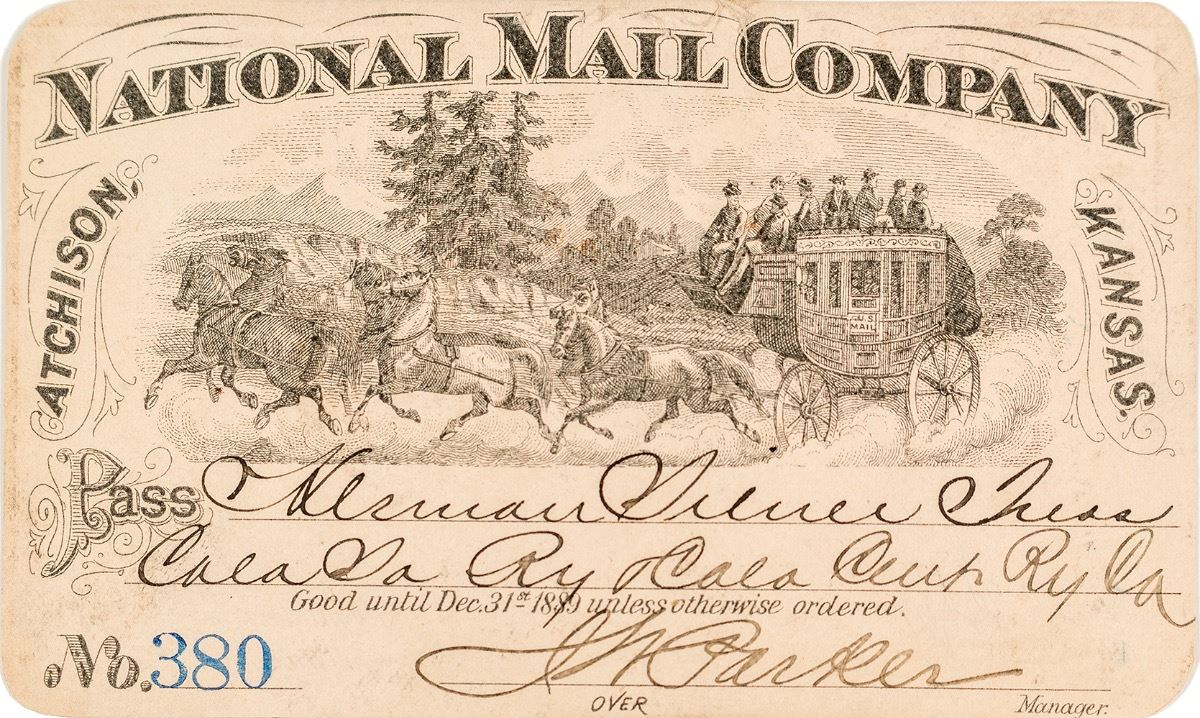 NATIONAL MAIL COMPANY
ATCHISON,
KANSAS.
U.S. MAIL
Pass Herman Silver Treas
Colo So Ry & Colo Cent Ry Co
Good until Dec. 31st 1889 unless otherwise ordered.
No. 380
J W Parker
OVER
Manager.